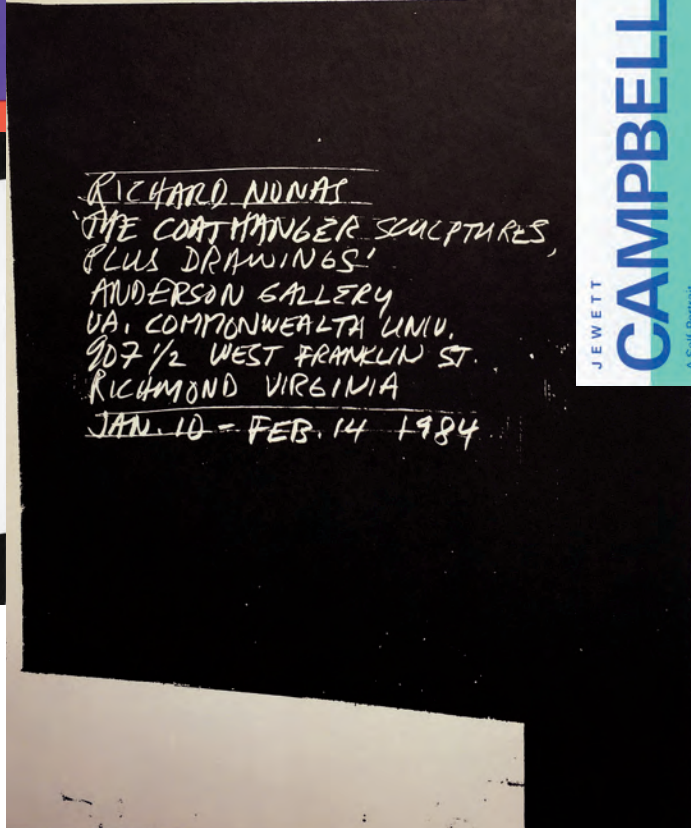 RICHARD NONAS
'THE COATHANGER SCULPTURES,
PLUS DRAWINGS'
ANDERSON GALLERY
VA. COMMONWEALTH UNIV.
907 1/2 WEST FRANKLIN ST.
RICHMOND VIRGINIA
JAN. 10 - FEB. 14 1984
JEWETT
CAMPBELL
A Self Portrait